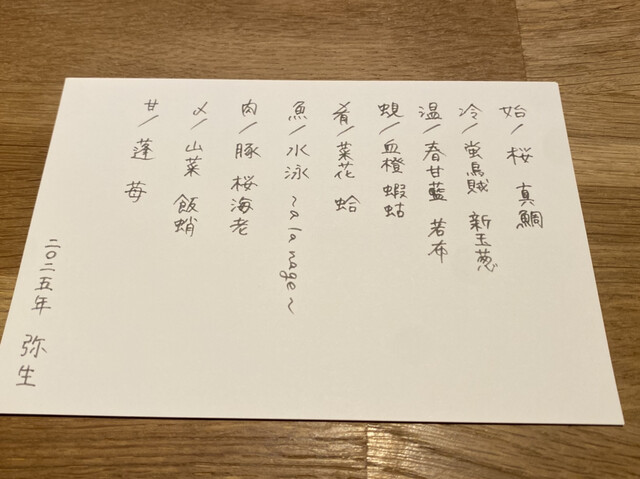 始／桜 真鯛
冷／蛍烏賊 新玉葱
温／春甘藍 若布
蜆／血橙 蝦蛄
肴／菜花 蛤
魚／水泳 ～a la nage～
肉／豚 桜海老
〆／山菜 飯蛸
甘／蓬 苺
二〇二五年 弥生